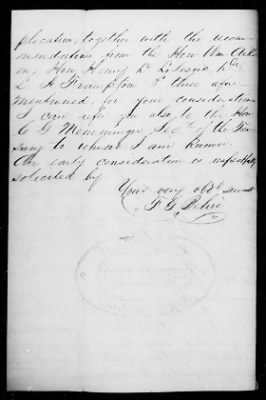 plication, together with the recom-
mendations from the Hon. Wm
on, Hon. Henry D.
L. A. Frampton & those afore
mentioned, for your consideration
I can refer you also to the Hon
C G Memminger Secy of the Trea
sury to whom I am known.
An early consideration is respectfully
solicited by
Your very obdt servant
F. G.